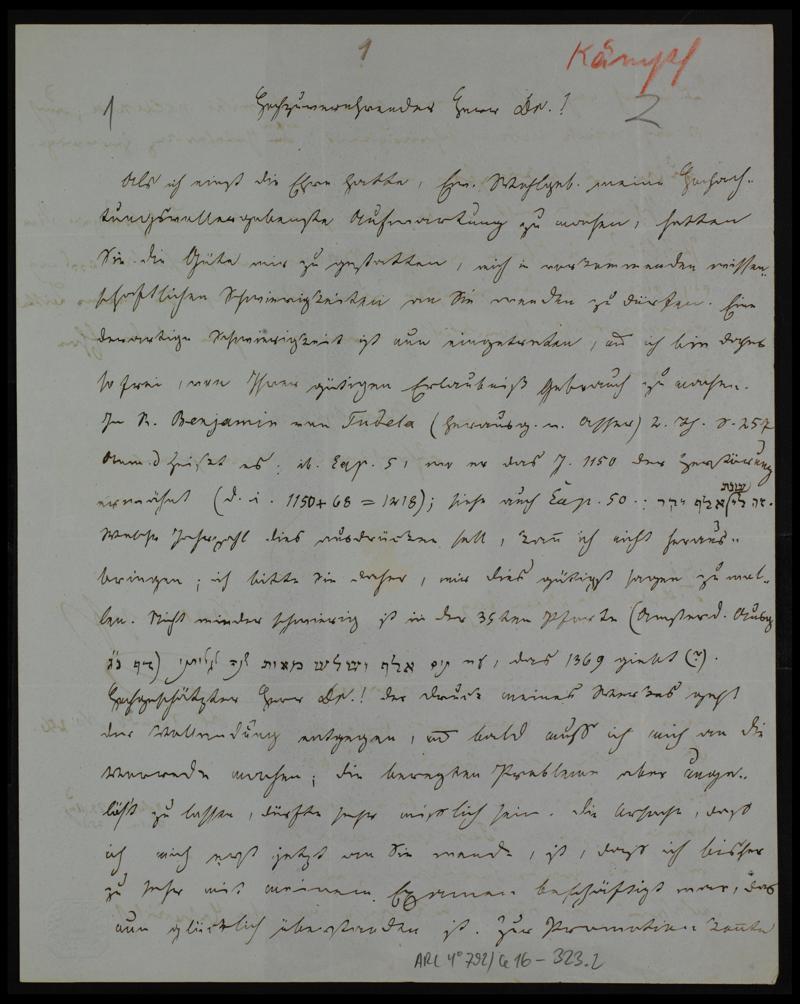 1
Kämpf
1 Hochzuverehrender Herr Dr.! 2
Als ich einst die Ehre hatte, Ew. Wohlgeb. meine Hochach-
tungsvollergebenste Aufwartung zu machen, hatten
Sie die Güte mir zu gestatten, mich in vorkommenden wissen-
schaftlichen Schwierigkeiten an Sie wenden zu dürfen. Eine
derartige Schwierigkeit ist nun eingetreten, und ich bin daher
so frei, von Ihrer gütigen Erlaubniß Gebrauch zu machen.
In R. Benjamin von Tudela (herausg. v. Asher) 2. Th. S. 257
Anm. heißet es: ib. Cap. 5, wo er das J. 1150 der Zerstörung
erwähnt (d. i. 1150 + 68 = 1218); siehe auch Cap. 50.: זה לי אלף יקר שנות.
Welche Jahrzahl dies ausdrücken soll, kann ich nicht heraus-
bringen; ich bitte Sie daher, mir dies gütigst sagen zu wol-
len. Nicht minder schwierig ist in der 35ten Pforte (Amsterd. Ausg.
עד היום אלף ושלש מאות שנה לגלותי (דף, das 1369 giebt (?).
Hochgeschätzter Herr Dr.! der Druck meines Werkes geht
der Vollendung entgegen, und bald muß ich mich an die
Vorrede machen; die beregten Probleme aber ungelöst
zu lassen, dürfte sehr mißlich sein. Die Ursache, daß
ich mich erst jetzt an Sie wende, ist, daß ich bisher
zu sehr mit meinem Examen beschäftigt war, das
nun glücklich überstanden ist. Zur Promotion konnte
ARC 4° 792/G16-323.2